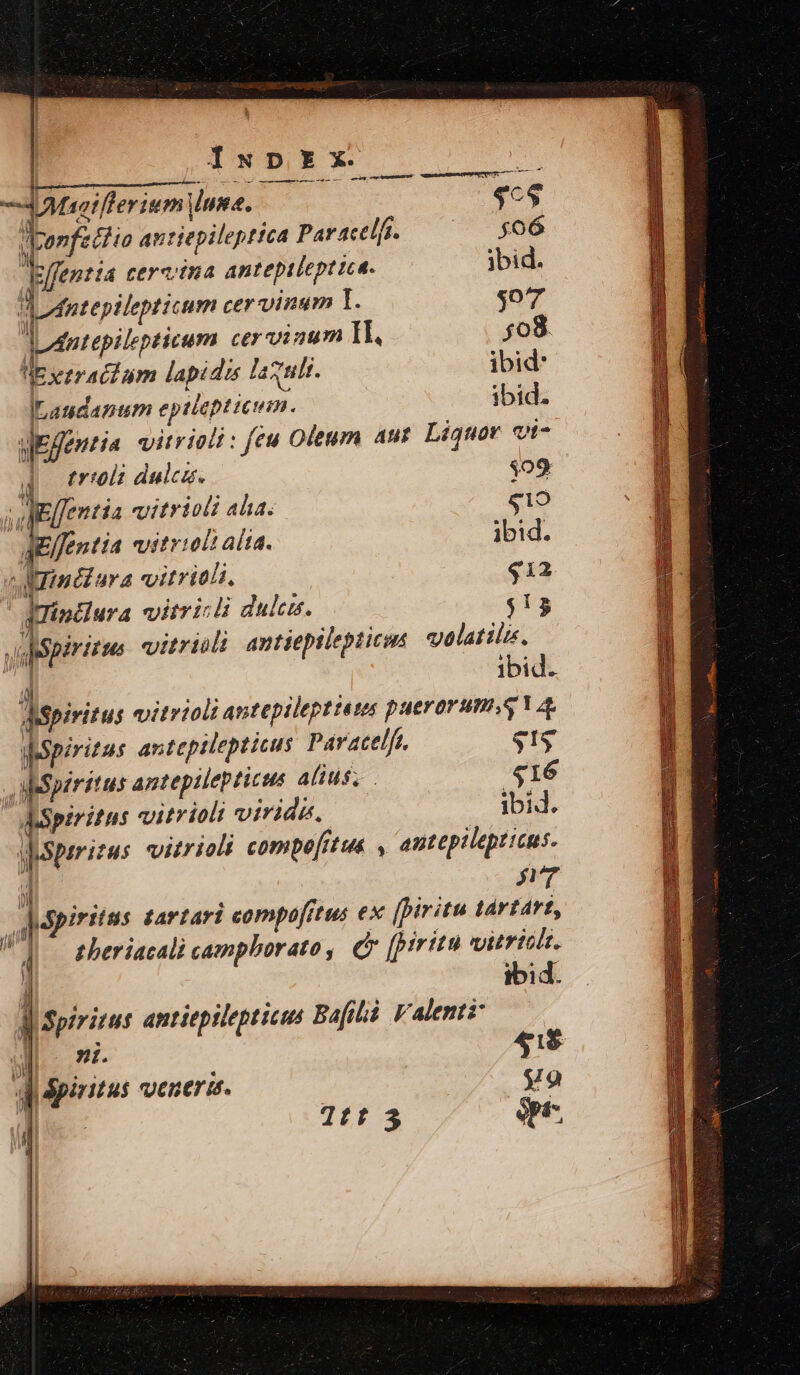 INDEX.
Magiſterium lunæ. 505
Confectio antiepileptica Paracelſi. 506
Eſſentia cervina antepileptica. ibid.
Antepilepticum cervinum I. 507
Antepilepticum cervinum II, 508
Extractum lapidis lazuli. ibid.
Laudanum epilepticum. ibid.
Eſſentia vitrioli: ſeu Oleum aut Liquor vi-
trioli dulcis. 509
Eſſentia vitrioli alia. 510
Eſſentia vitrioli alia. ibid.
Tinctura vitrioli. 512
Tinctura vitrioli dulcis. 513
Spiritus vitrioli antiepilepticus volatilis.
ibid.
Spiritus vitrioli antepilepticus puerorum. 514
Spiritus antepilepticus Paracelſi. 515
Spiritus antepilepticus alius. 516
Spiritus vitrioli viridis. ibid.
Spiritus vitrioli compoſitus, antepilepticus.
517
Spiritus tartari compoſitus ex ſpiritu tartari,
theriacali camphorato, & ſpiritu vitrioli.
ibid.
Spiritus antiepilepticus Baſilii Valenti-
ni. 518
Spiritus veneris. 519
Ttt 3 Spi-